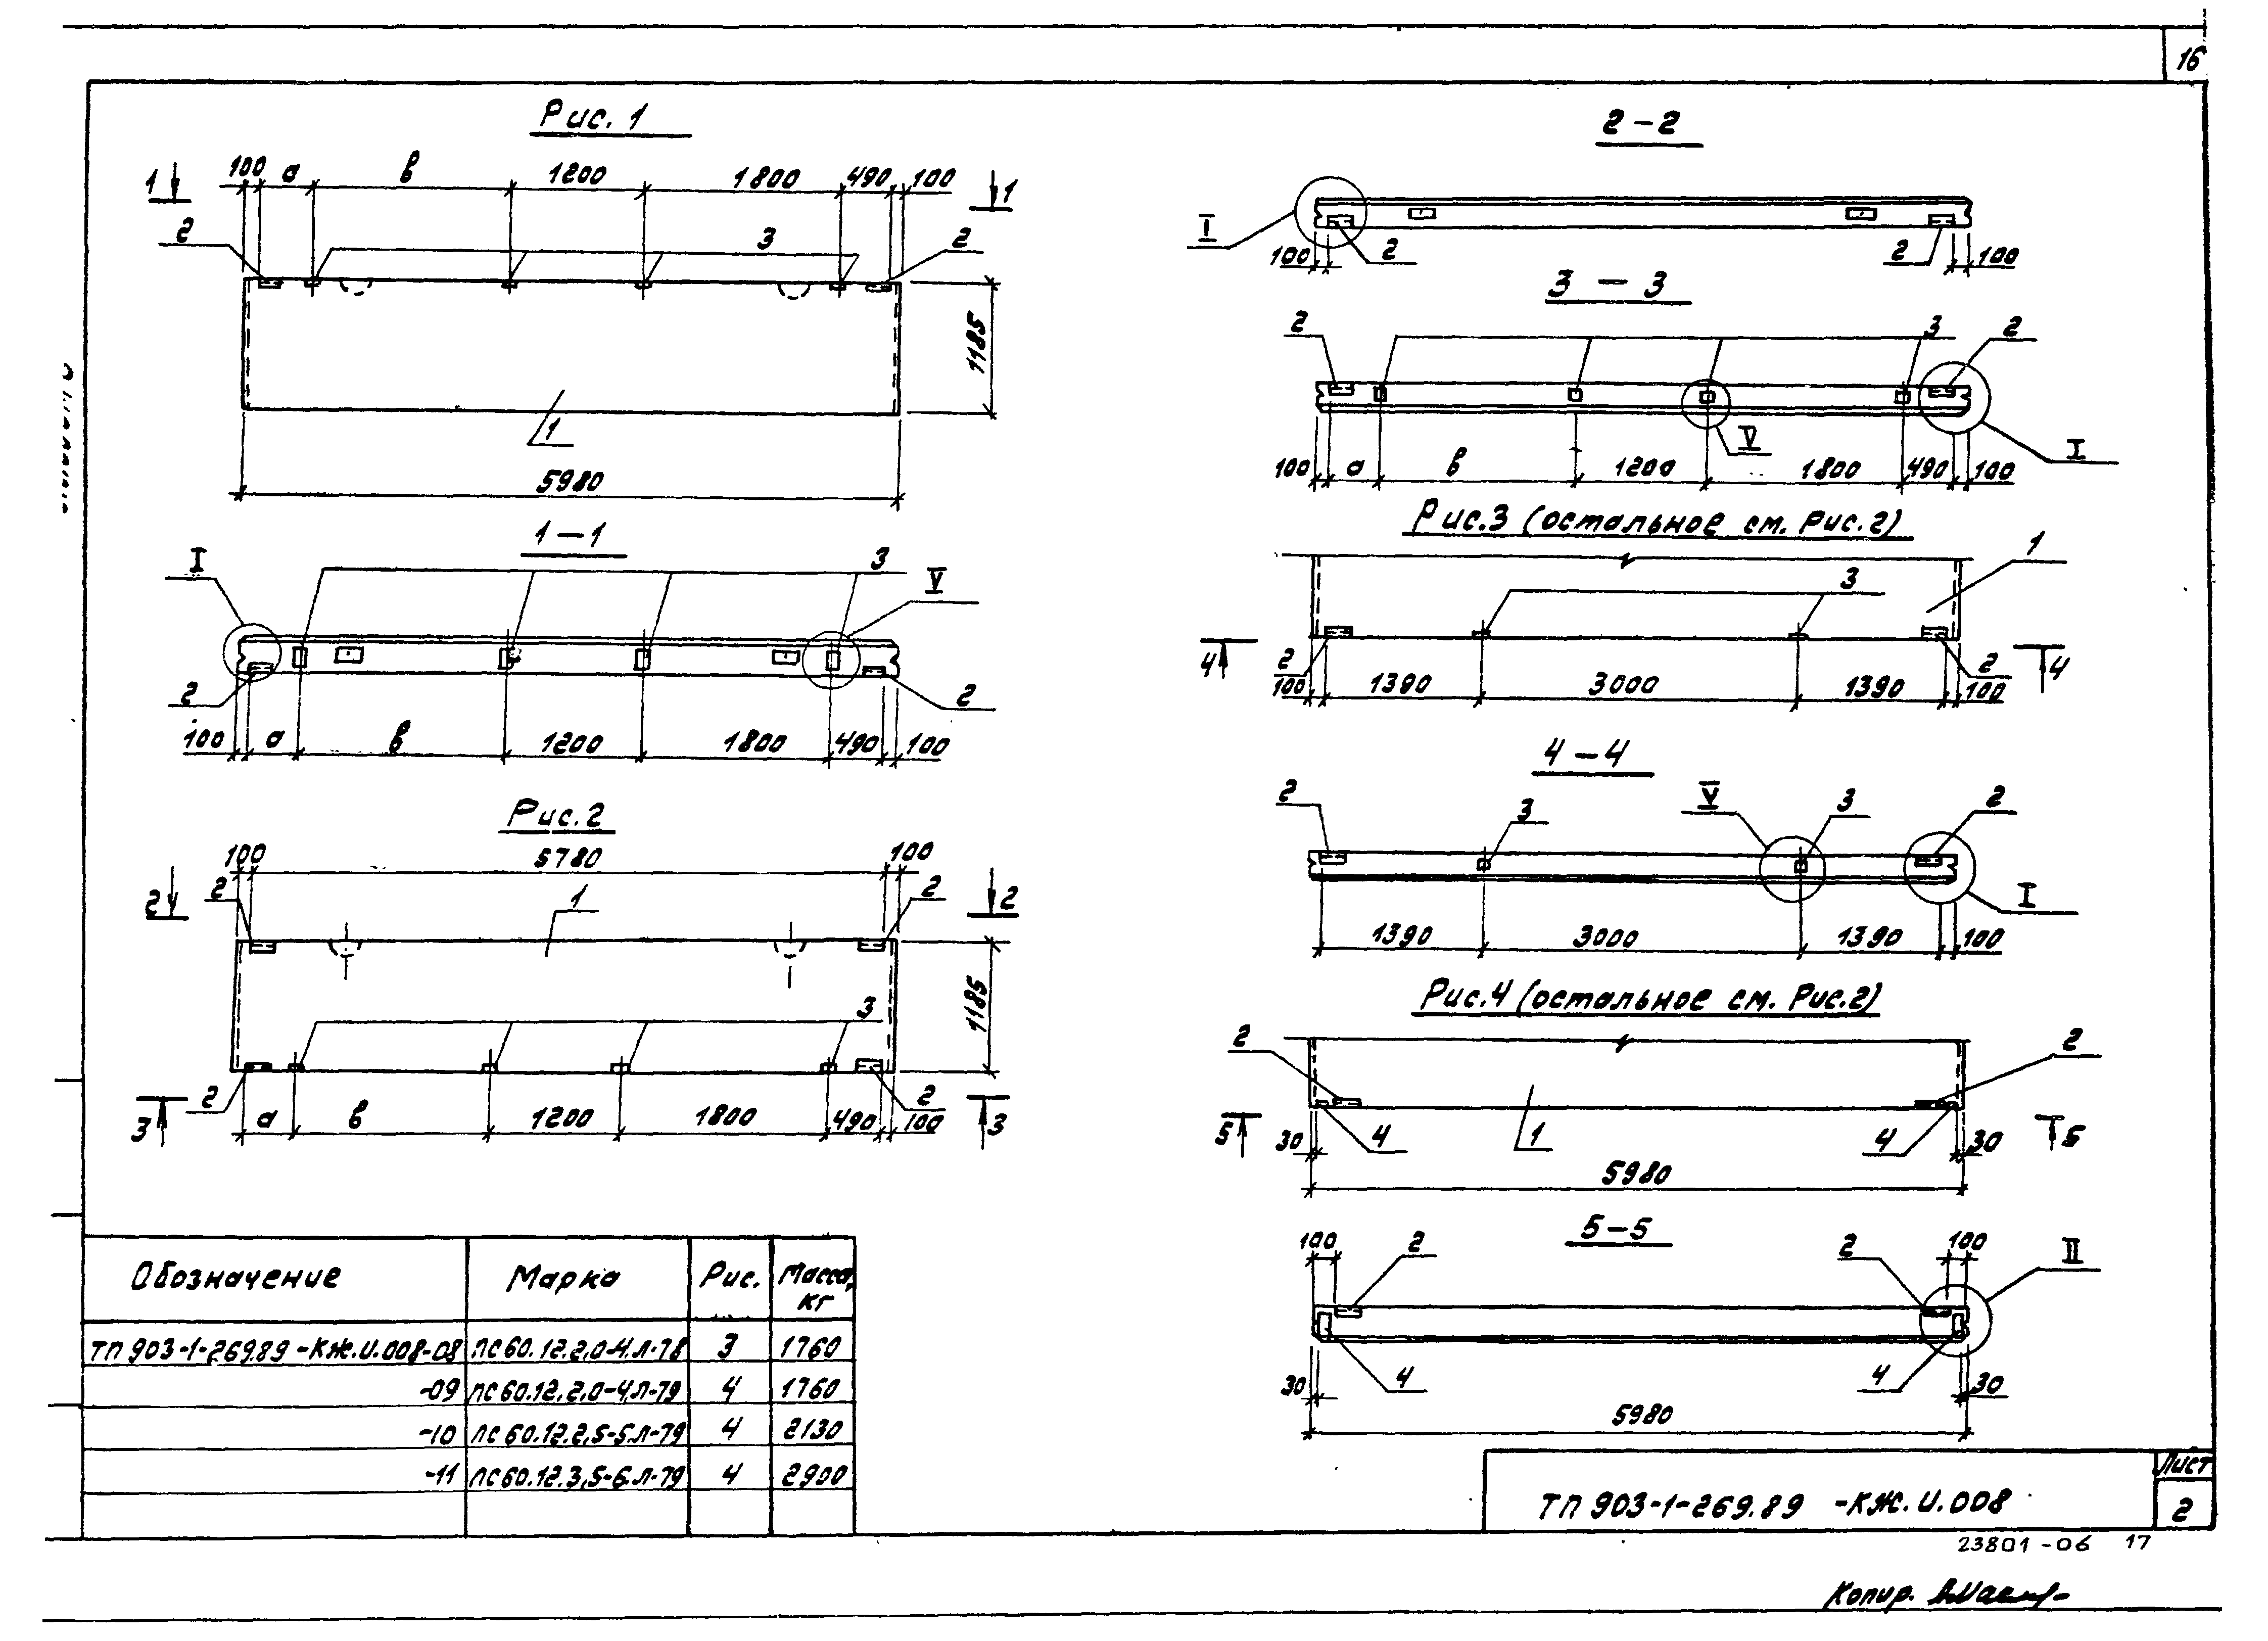 16
Рис. 1
1 100 а в 1200 1800 490 100 1
2 3 2
1185
1
5980
1-1
I 3 V
2 2
100 а в 1200 1800 490 100
Рис. 2
100 5780 100
2 2 1 2 2
1185
3
2 2
3 а в 1200 1800 490 100 3
2-2
I
100 2 2 100
3-3
2 3 2
V I
100 а в 1200 1800 490 100
Рис.3 (остальное см. Рис.2)
1
3
4 2 2 4
100 1390 3000 1390 100
4-4
2 3 V 3 2
I
1390 3000 1390 100
Рис.4 (остальное см. Рис.2)
2 2
5 30 4 1 4 30 5
5980
5-5
100 2 2 100 II
30 4 4 30
5980
Обозначение Марка Рис. Масса, кг
ТП 903-1-269.89 -КЖ.И.008-08 ПС60.12.2,0-4.Л-78 3 1760
-09 ПС60.12.2,0-4.Л-79 4 1760
-10 ПС60.12.2,5-5.Л-79 4 2130
-11 ПС60.12.3,5-6.Л-79 4 2900
ТП 903-1-269.89 -КЖ.И.008
Лист
2
23801-06 17
Копир.